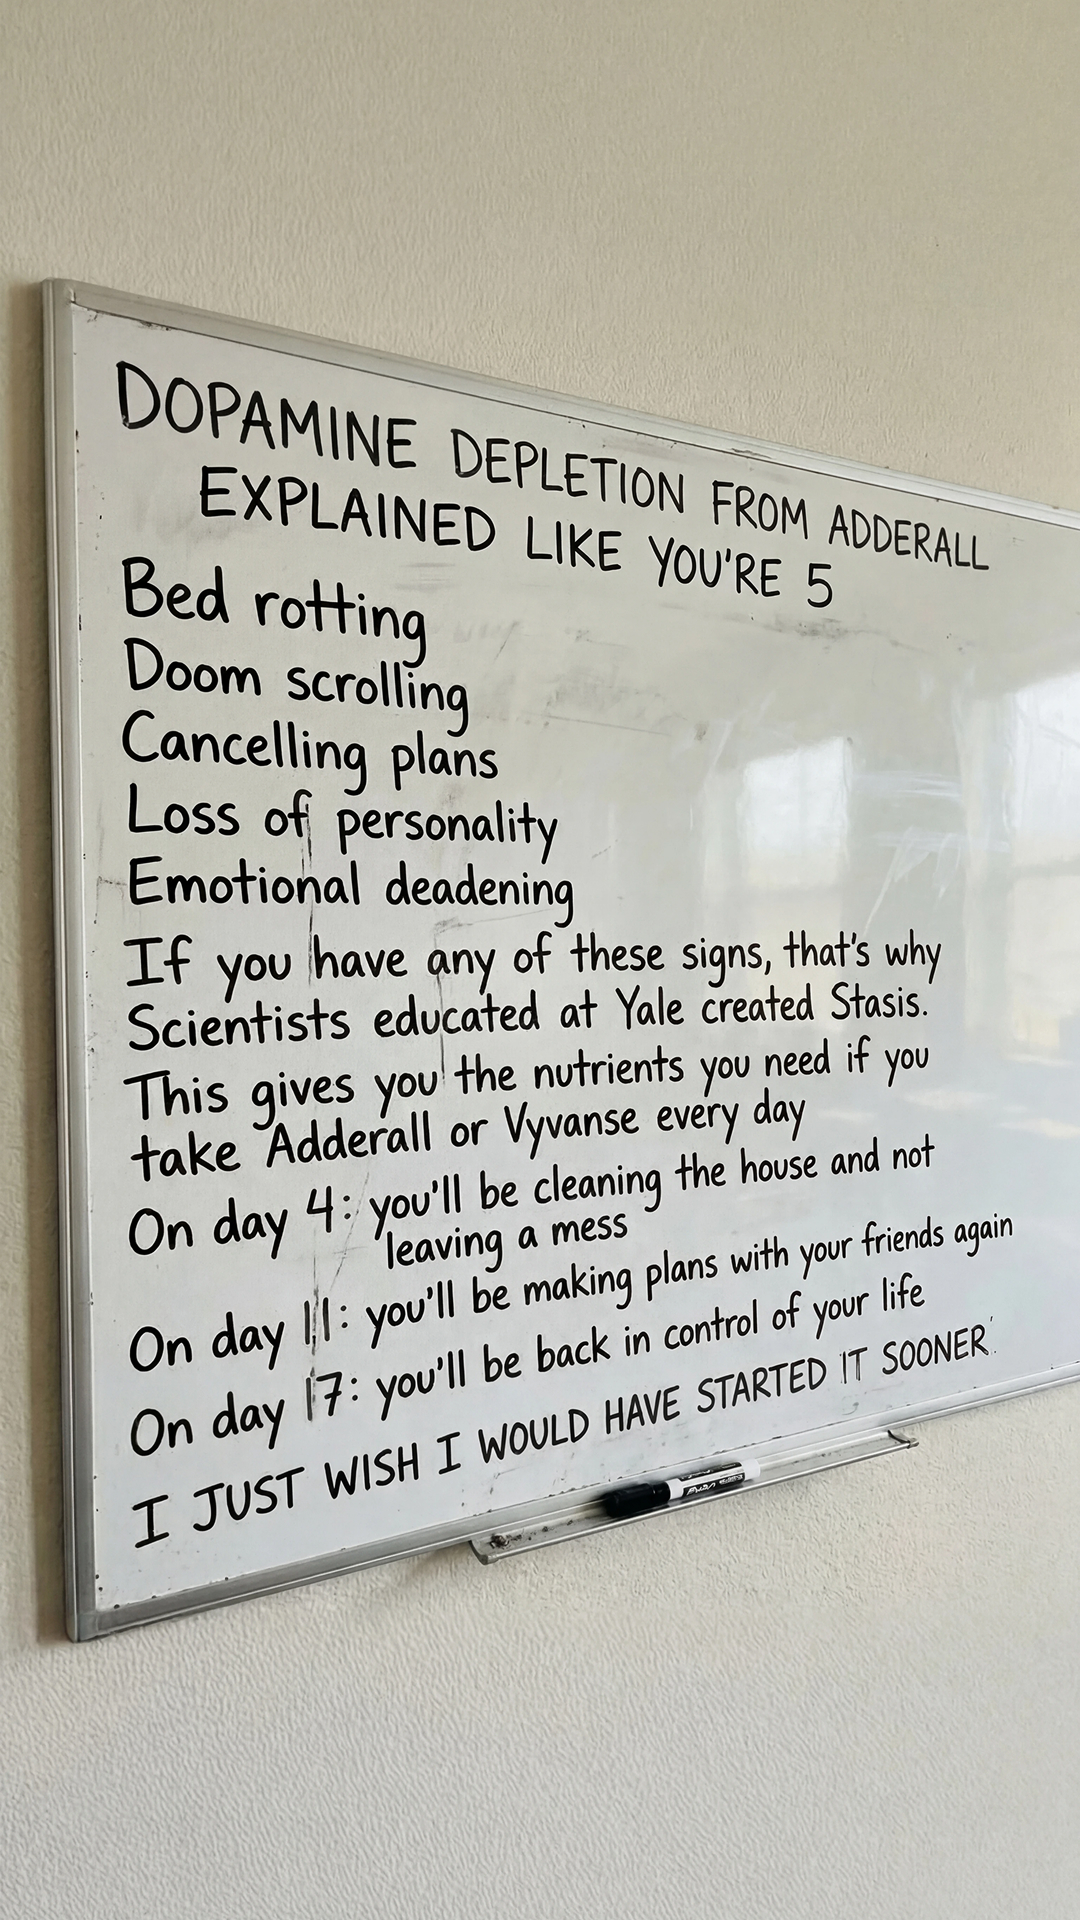 DOPAMINE DEPLETION FROM ADDERALL
EXPLAINED LIKE YOU'RE 5
Bed rotting
Doom scrolling
Cancelling plans
Loss of personality
Emotional deadening
If you have any of these signs, that's why
Scientists educated at Yale created Stasis.
This gives you the nutrients you need if you
take Adderall or Vyvanse every day
On day 4: you'll be cleaning the house and not
leaving a mess
On day 11: you'll be making plans with your friends again
On day 17: you'll be back in control of your life
I JUST WISH I WOULD HAVE STARTED IT SOONER.